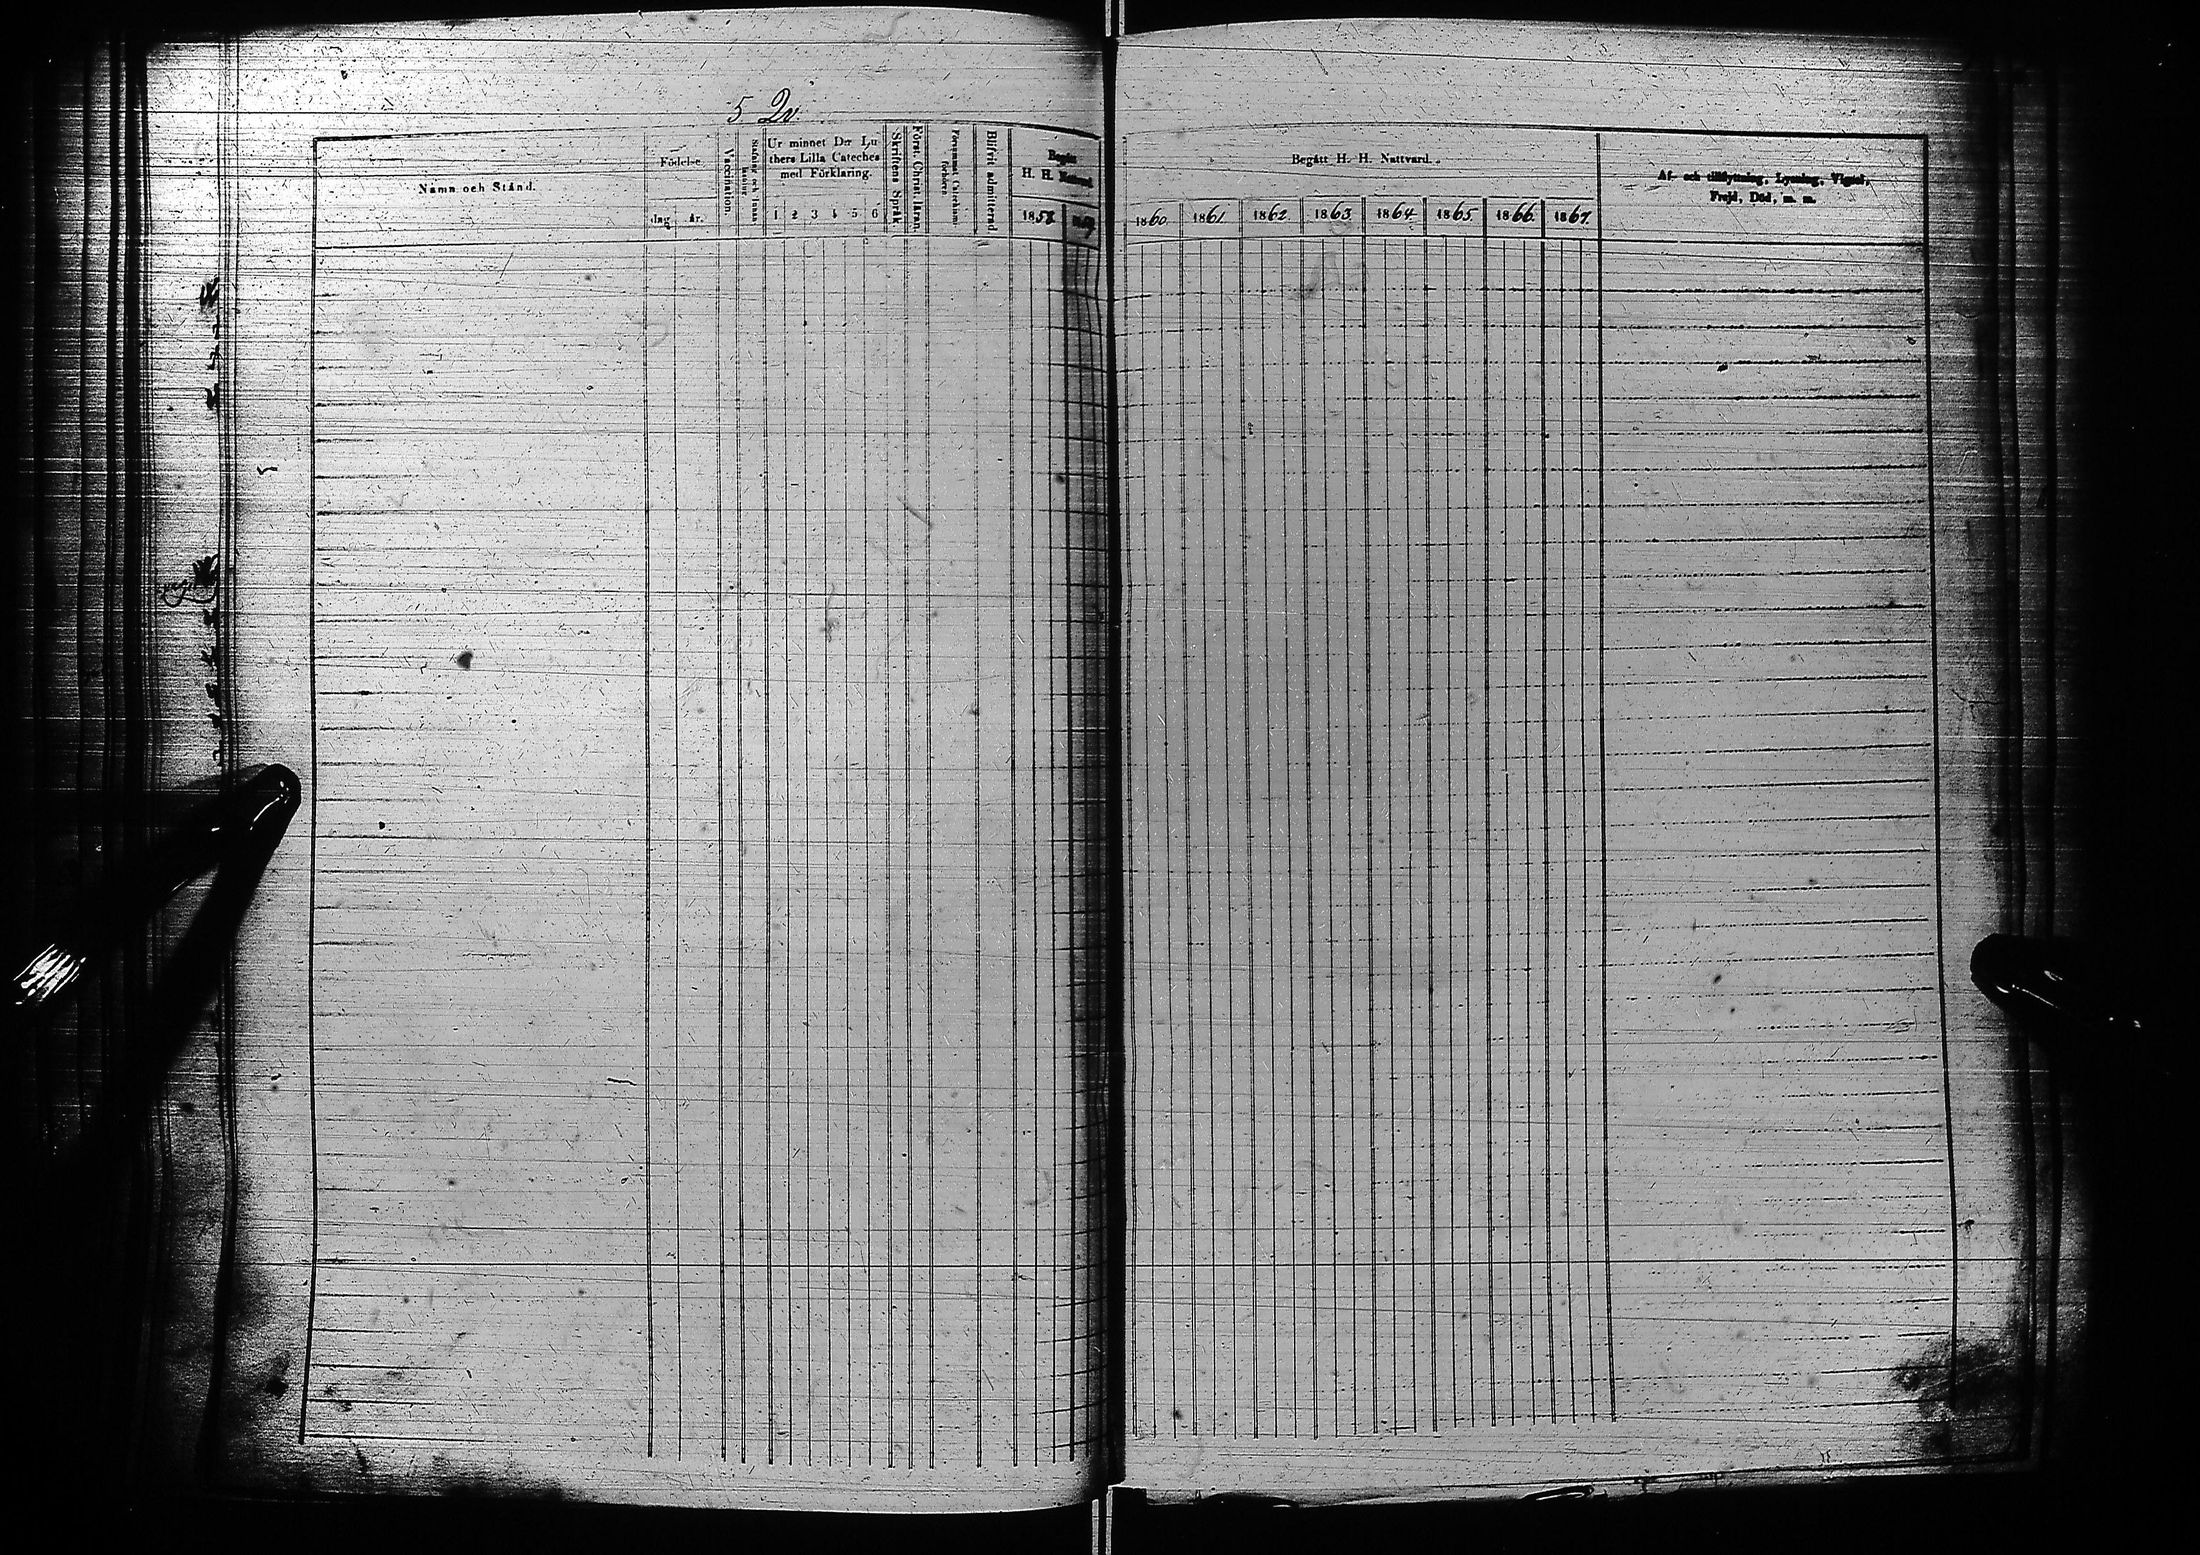 5 Qv
Namn och Stånd.
Födelse
dag
år.
Vaccination.
Ur minnet Dr Lu
thers Lilla Cateches
med Förklaring.
1 2 3 4 5 6
Skriftens Språk.
Först. Christ. läran.
Försummat Catechism.
förhören
Blifvit admitterad
Begått
H. H. Nattvard
1858
1859
Begått H. H. Nattvard.
1860. 1861. 1862. 1863. 1864. 1865. 1866. 1867.
Af- och tillflyttning, Lysning, Vigsel,
Frejd, Död, m. m.